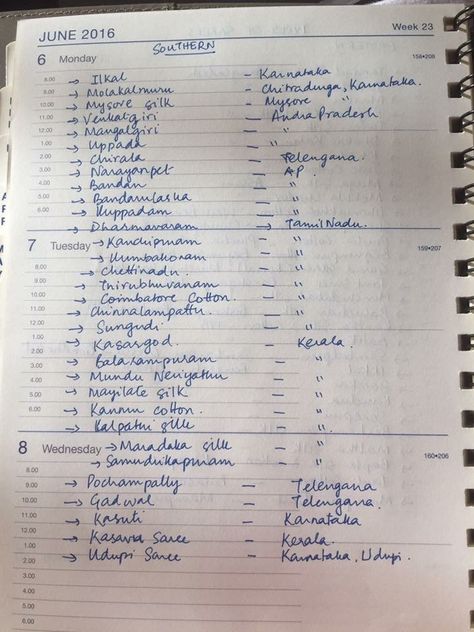 JUNE 2016 Week 23
SOUTHERN
6 Monday 158•208
8.00 → Ilkal - Karnataka
9.00 → Molakalmuru - Chitradurga, Karnataka.
10.00 → Mysore silk - Mysore "
11.00 → Venkatgiri - Andra Pradesh
12.00 → Mangalgiri - "
1.00 → Uppada - "
2.00 → Chirala - Telengana.
3.00 → Narayanpet - AP.
4.00 → Bandan - "
5.00 → Bandarulanka - "
6.00 → Kuppadam - "
→ Dharmavaram → Tamil Nadu.
7 Tuesday → Kanchipuram - " 159•207
→ Kumbakonam - "
8.00 → Chettinadu. - "
9.00 → Thirubhuvanam - "
10.00 → Coimbatore Cotton. - "
11.00 → Chinnalampattu. - "
12.00 → Sungudi - "
1.00 → Kasargod. - Kerala.
2.00 → Balarampuram - "
3.00 → Mundu Neriyathu - "
4.00 → Mayilate silk - "
5.00 → Kannur cotton. - "
6.00 → Kalpathi silk - "
8 Wednesday → Maradaka silk - " 160•206
→ Samudrikapuram - "
8.00
9.00 → Pochampally - Telengana
10.00 → Gadwal - Telengana.
11.00 → Kasuti - Karnataka
12.00 → Kasava Saree - Kerala.
1.00 → Udupi Saree - Karnataka, Udupi.
2.00
3.00
4.00
5.00
6.00